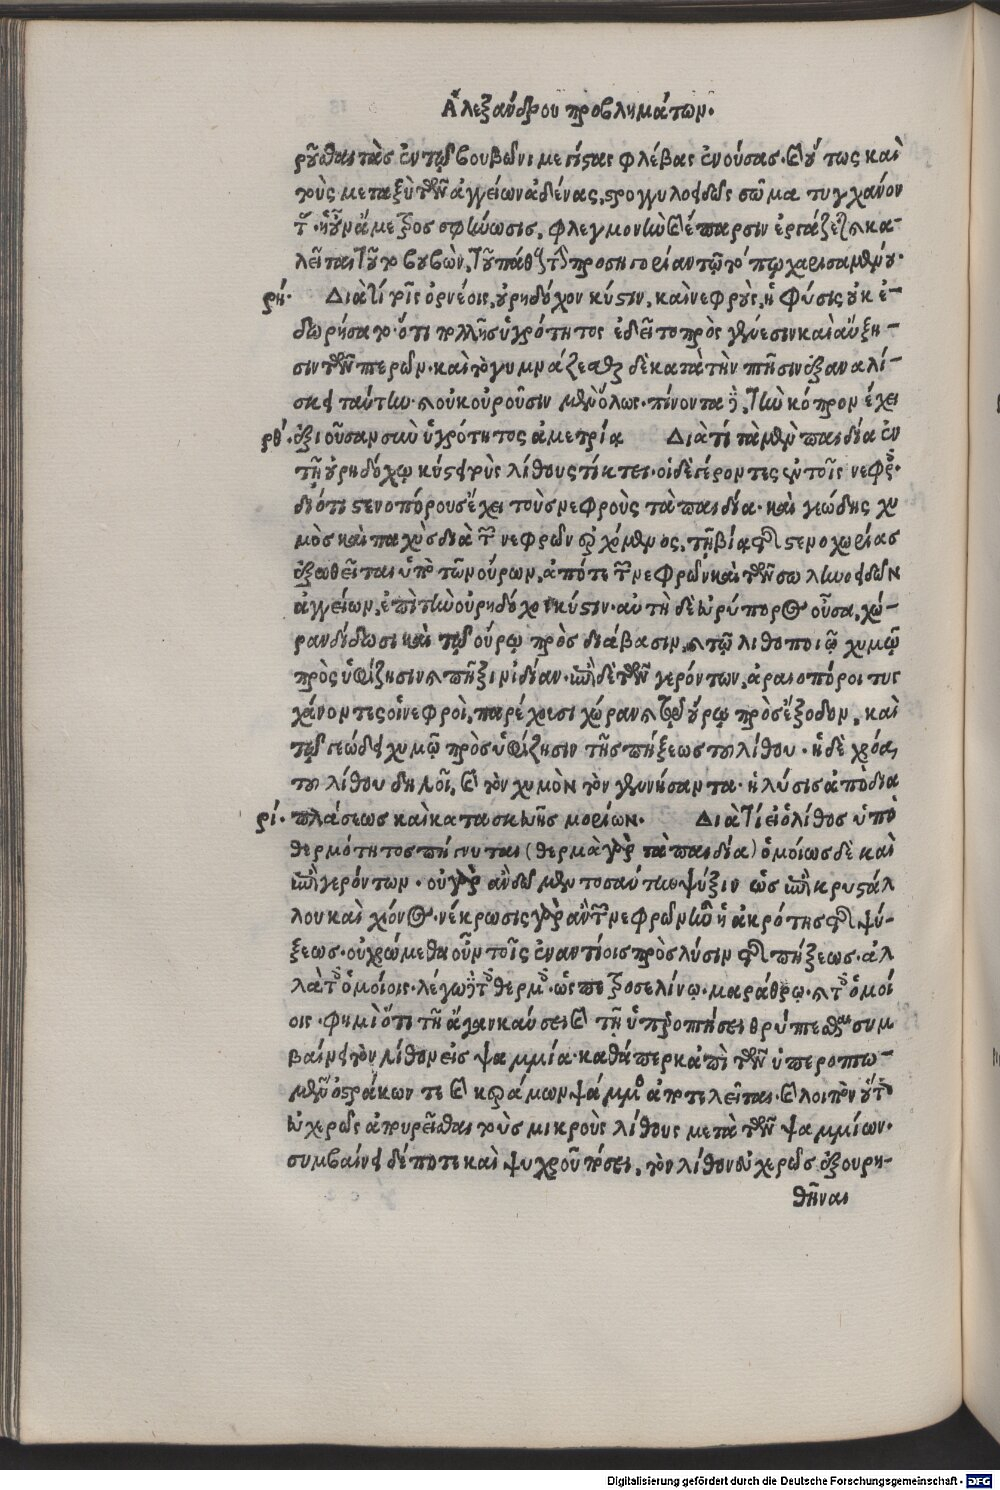 Ἀλεξάνδρου προβλημάτων.
ροῦσθαι τὰς ἐν τῷ βουβῶνι μεγίστας φλέβας ἐνούσας. οὕτως καὶ
τοὺς μεταξὺ τῶν ἀγγείων ἀδένας, στρογγυλοειδὲς σῶμα τυγχάνον
σφήνωσις, φλεγμονὴν καὶ ἔπαρσιν ἐργάζεται καὶ κα-
λεῖται τοῦτο βουβὼν, τοῦ πάθους τὴν προσηγορίαν τῷ τόπῳ χαρισαμένου.
ρη. Διὰ τί τοῖς ὀρνέοις, οὐρηδόχον κύστιν, καὶ νεφροὺς, ἡ φύσις οὐκ ἐ-
δωρήσατο. ὅτι πολλῆς ὑγρότητος ἐδεῖτο πρὸς γένεσιν καὶ αὔξη-
σιν τῶν πτερῶν. καὶ τὸ γυμνάζεσθαι δὲ κατὰ τὴν πτῆσιν ἐξαναλί-
σκει ταύτην. καὶ οὐκ οὐροῦσιν μὲν ὅλως. πίνοντα δὲ, τὴν κόπρον ἔχει
ρθ. ἐξιοῦσαν σὺν ὑγρότητος ἀμετρίᾳ Διὰ τί τὰ μὲν παιδία ἐν
τῇ οὐρηδόχῳ κύστει τοὺς λίθους τίκτει. οἱ δὲ γέροντες ἐν τοῖς νεφροῖς.
διότι στενοπόρους ἔχει τοὺς νεφροὺς τὰ παιδία. καὶ γεώδης χυ
μὸς καὶ παχὺς διὰ τῶν νεφρῶν ἐρχόμενος, τῇ βίᾳ τῆς στενοχωρίας
ἐξωθεῖται ὑπὸ τῶν οὔρων, ἀπό τε τῶν νεφρῶν καὶ τῶν σωληνοειδῶν
ἀγγείων, ἐπὶ τὴν οὐρηδόχον κύστιν. αὐτὴ δὲ εὐρύπορος οὖσα, χώ-
ραν δίδωσι καὶ τῷ οὔρῳ πρὸς διάβασιν, καὶ τῷ λιθοποιῷ χυμῷ
πρὸς ὑφίζησιν καὶ πῆξιν ἰδίαν. ἐπὶ δὲ τῶν γερόντων, ἀραιοπόροι τυγ
χάνοντες οἱ νεφροὶ, παρέχουσι χώραν καὶ τῷ οὔρῳ πρὸς ἔξοδον, καὶ
τῷ γεώδει χυμῷ πρὸς ὑφίζησιν τῆς πήξεως τοῦ λίθου. ἡ δὲ χρόα,
τοῦ λίθου δηλοῖ, καὶ τὸν χυμὸν τὸν γεννήσαντα. ἡ λύσις ἀπὸ δια
ρι. πλάσεως καὶ κατασκευῆς μορίων. Διὰ τί εἰ ὁ λίθος ὑπὸ
θερμότητος πήγνυται (θερμὰ γὰρ τὰ παιδία) ὁμοίως δὲ καὶ
ἐπὶ γερόντων. οὐ γὰρ ἂν εἴποιμεν τοσαύτην ψύξιν ὡς ἐπὶ κρυστάλ
λου καὶ χιόνος. νέκρωσις γὰρ ἂν τῶν νεφρῶν ἦν ἡ ἀκρότης τῆς ψύ-
ξεως. οὐ χρώμεθα οὖν τοῖς ἐναντίοις πρὸς λύσιν τῆς πήξεως. ἀλ
λὰ τοῖς ὁμοίοις. λέγω δὲ τοῖς θερμοῖς. ὥσπερ πετροσελίνῳ. μαράθρῳ. καὶ τοῖς ὁμοί
οις. φημὶ ὅτι τῇ ἄγαν καύσει καὶ τῇ ὑπεροπτήσει θρύπτεσθαι συμ
βαίνει τὸν λίθον εἰς ψαμμία. καθάπερ κἀπὶ τῶν ὑπεροπτω-
μένων ὀστράκων τε καὶ κεράμων ψάμμος ἀποτελεῖται. καὶ λοιπὸν οὕτως
εὐχερῶς ἀπουρεῖσθαι τοὺς μικροὺς λίθους μετὰ τῶν ψαμμίων.
συμβαίνει δέ ποτε καὶ ψυχροῦ πόσει, τὸν λίθον εὐχερῶς ἐξουρη-
θῆναι
Digitalisierung gefördert durch die Deutsche Forschungsgemeinschaft - DFG